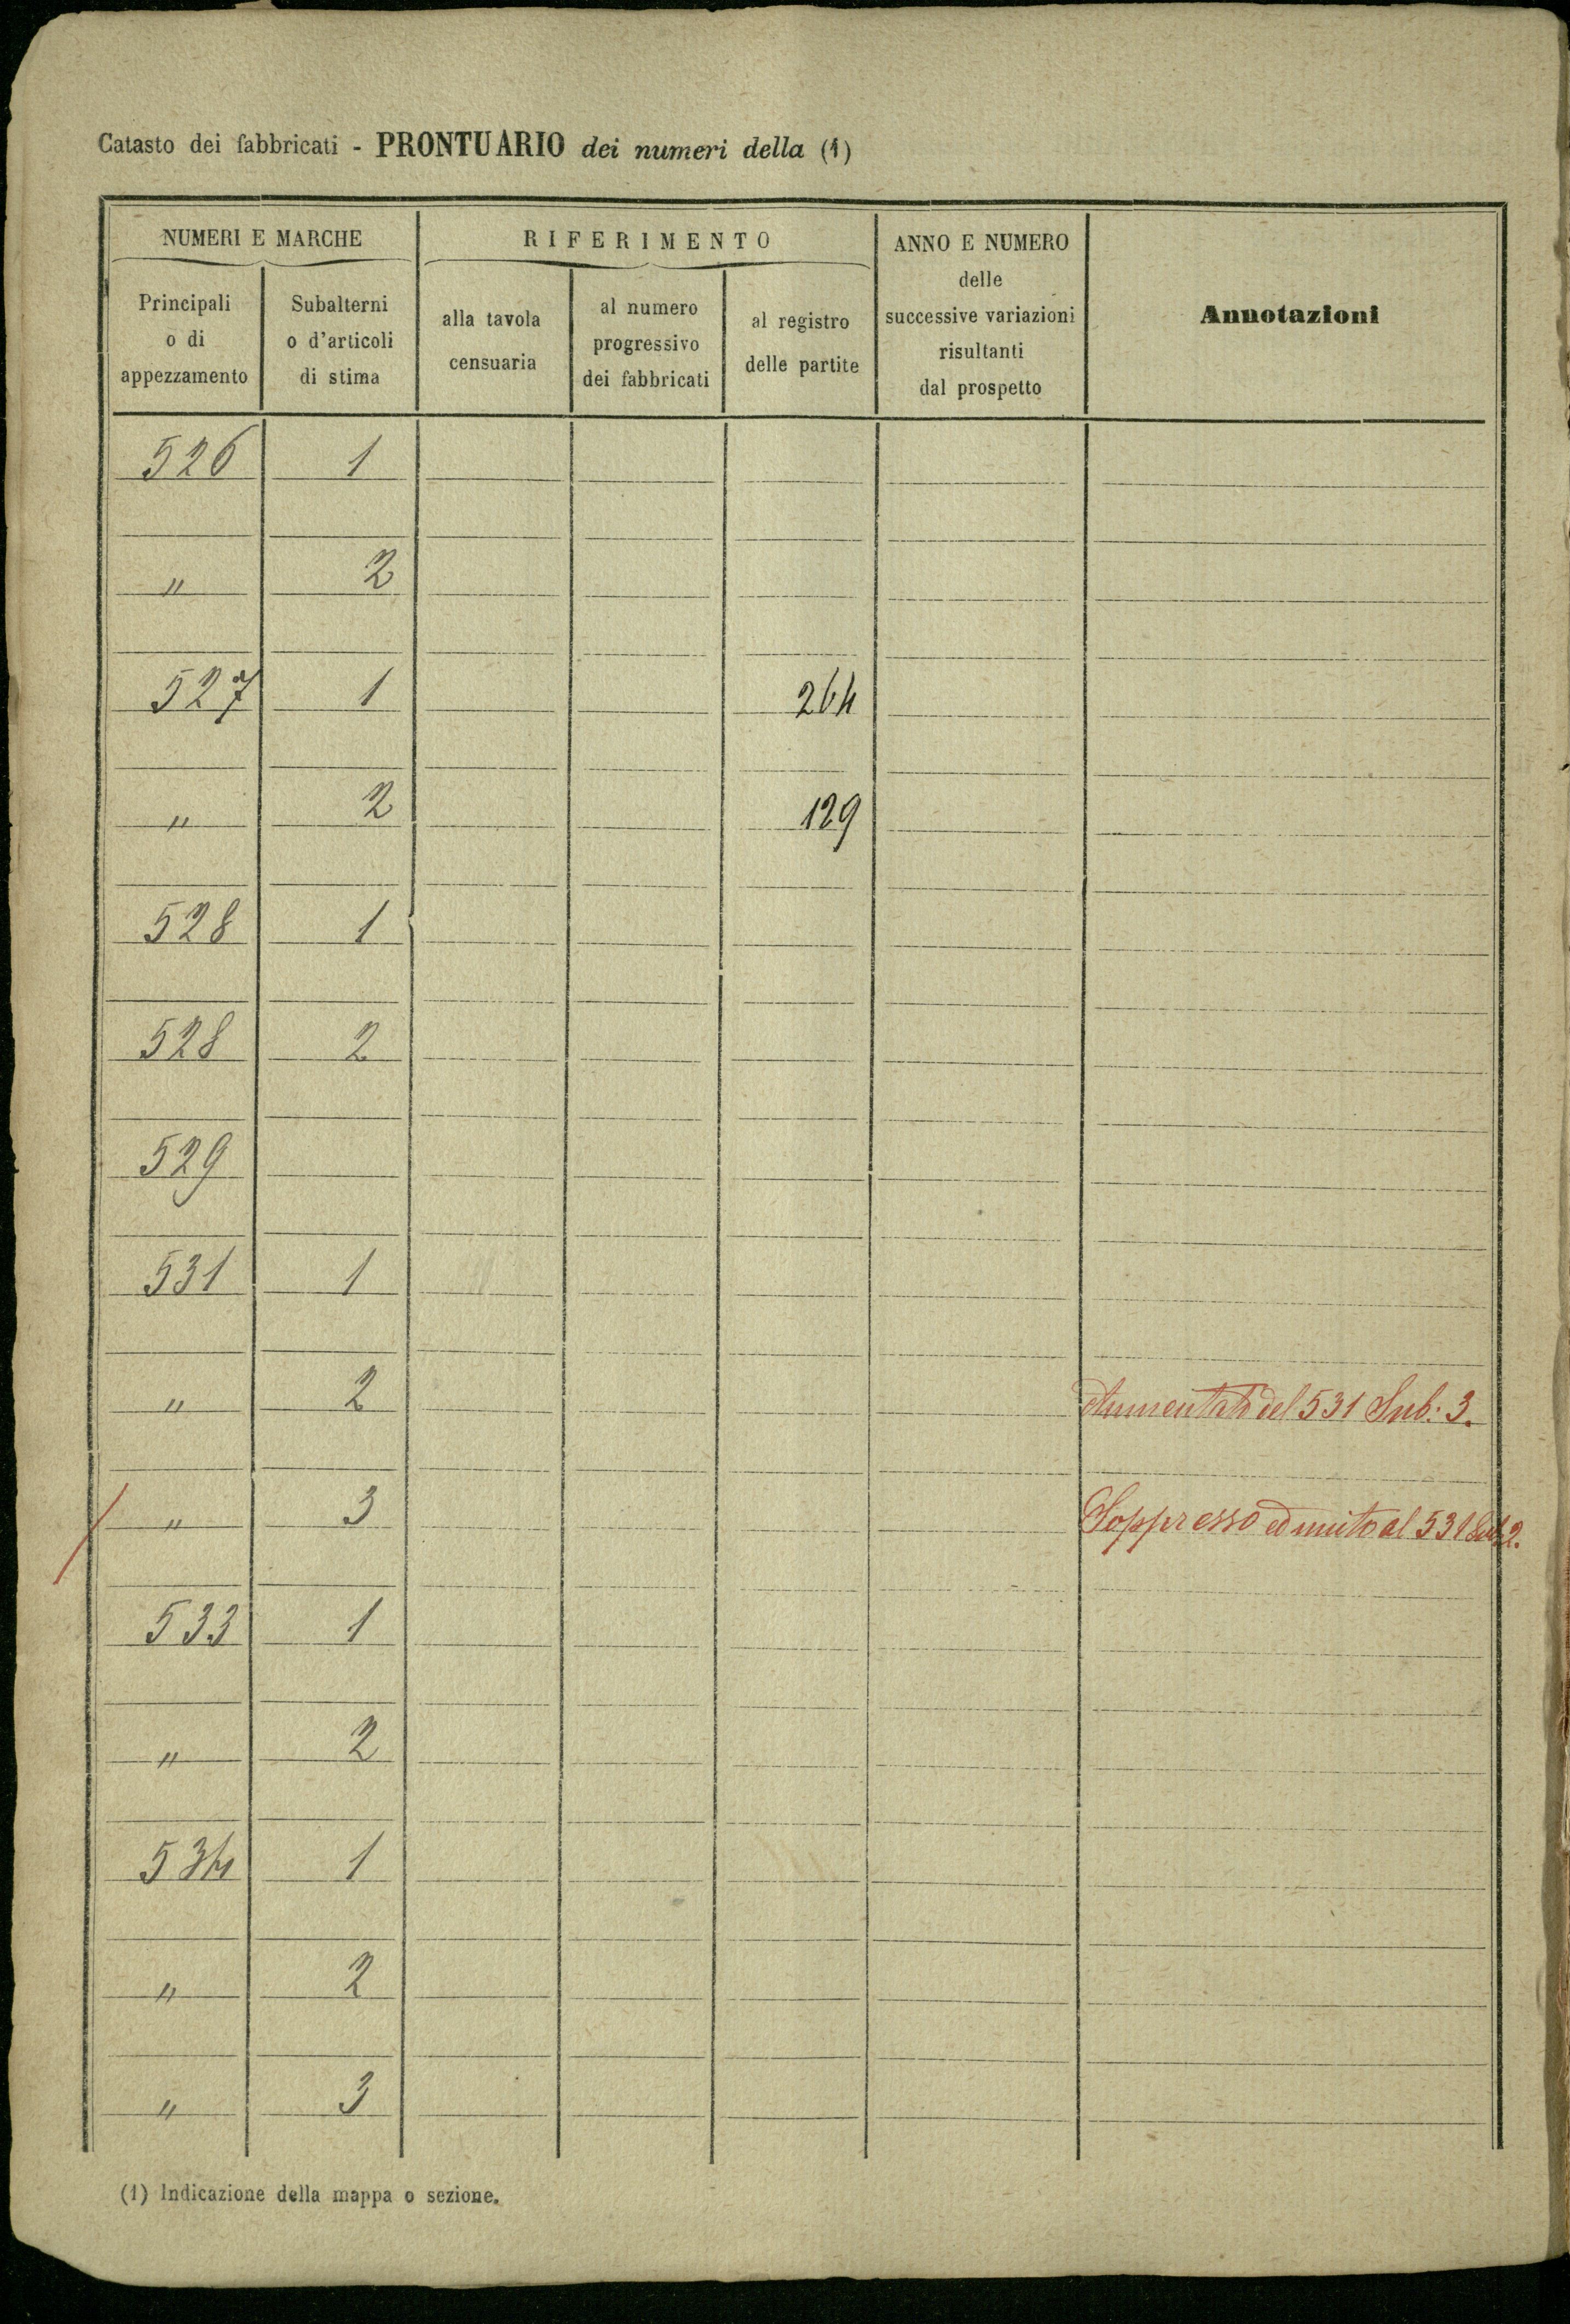 Catasto dei fabbricati - PRONTUARIO dei numeri della (1)
NUMERI E MARCHE
RIFERIMENTO
ANNO E NUMERO
delle
successive variazioni
risultanti
dal prospetto
Annotazioni
Principali
o di
appezzamento
Subalterni
o d'articoli
di stima
alla tavola
censuaria
al numero
progressivo
dei fabbricati
al registro
delle partite
526 1
" 2
527 1 264
" 2 129
528 1
528 2
529
531 1
" 2 Aumentato del 531 Sub: 3.
" 3 Soppresso ed unito al 531 Sub. 2.
533 1
" 2
534 1
" 2
" 3
(1) Indicazione della mappa o sezione.